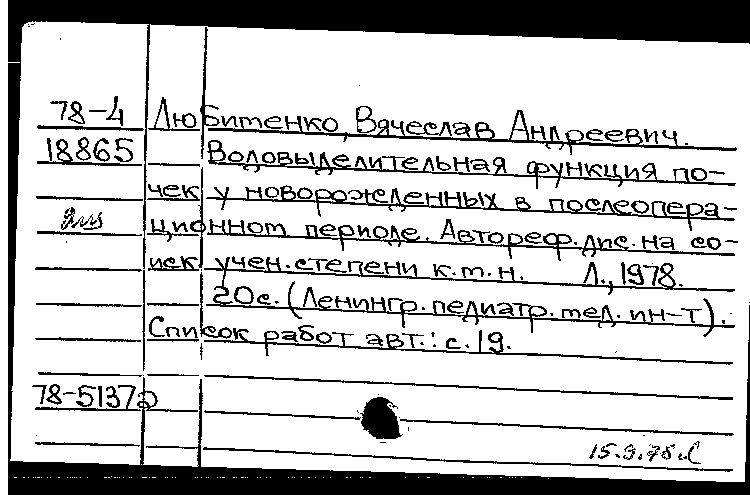 78-4 Любитенко, Вячеслав Андреевич.
18865 Водовыделительная функция по-
чек у новорожденных в послеопера-
ционном периоде. Автореф. дис. на со-
иск. учен. степени к.м.н. Л., 1978.
20с. (Ленингр. педиатр. мед. ин-т).
Список работ авт.: с. 19.
78-51370
15.9.78